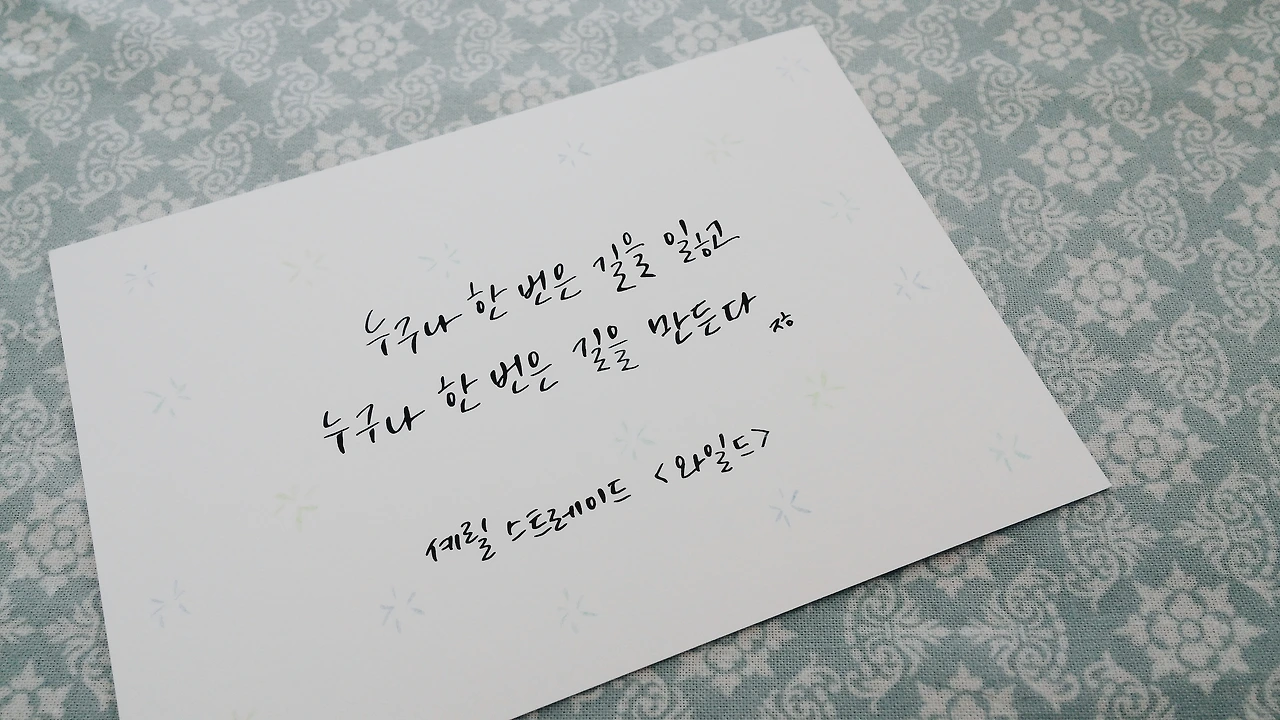 누구나 한 번은 길을 잃고
누구나 한 번은 길을 만든다
장
셰릴 스트레이드 <와일드>